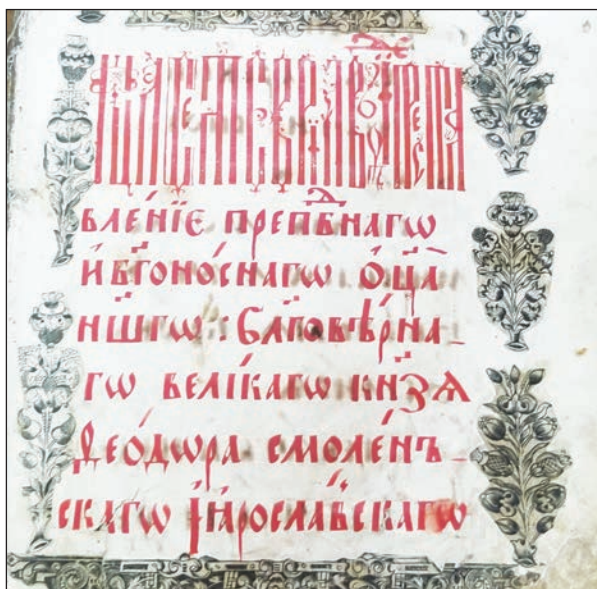 вле́нїе препⷣбнагѡ
и҆ бг҃оно́снагѡ ѻ҆ц҃а̀
нш҃гѡ : бл҃гове́рна_
гѡ вели́кагѡ кн҃зѧ
Ѳео́дѡра смоле́нъ_
скагѡ и҆ꙗросла́вскагѡ